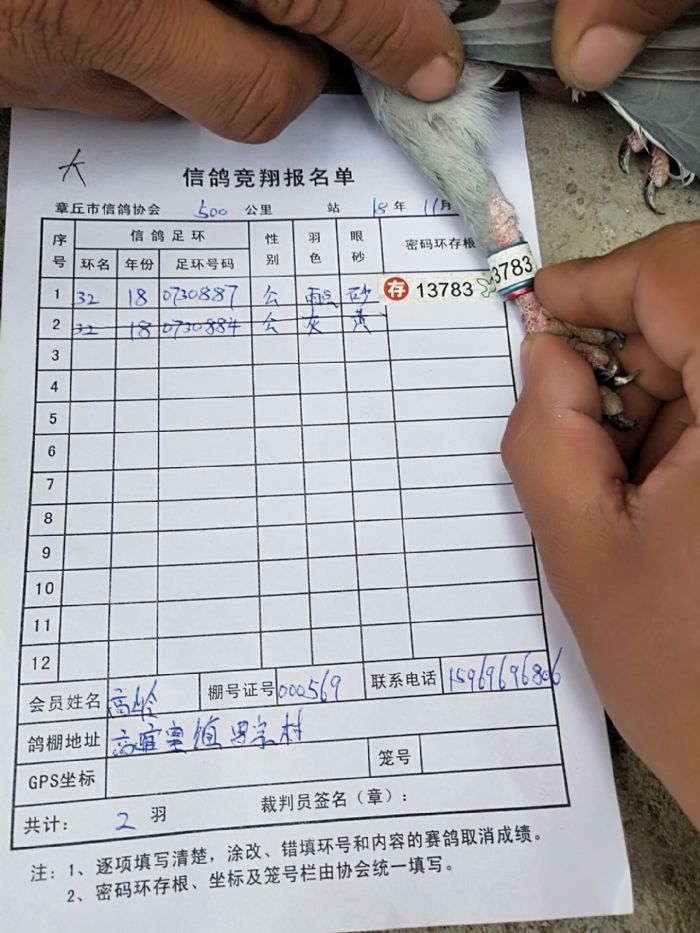 大
信鸽竞翔报名单
章丘市信鸽协会 500 公里 站 18 年 11 月
序号 信鸽足环 性别 羽色 眼砂 密码环存根
环名 年份 足环号码
1 32 18 0730887 公 雨点 砂 存 13783
13783
2 32 18 0730884 公 灰 黄
3
4
5
6
7
8
9
10
11
12
会员姓名 高岭 棚号证号 000569 联系电话 15969696806
鸽棚地址 高官寨镇 宗村
GPS坐标 笼号
共计: 2 羽 裁判员签名(章):
注:1、逐项填写清楚,涂改、错填环号和内容的赛鸽取消成绩。
2、密码环存根、坐标及笼号栏由协会统一填写。